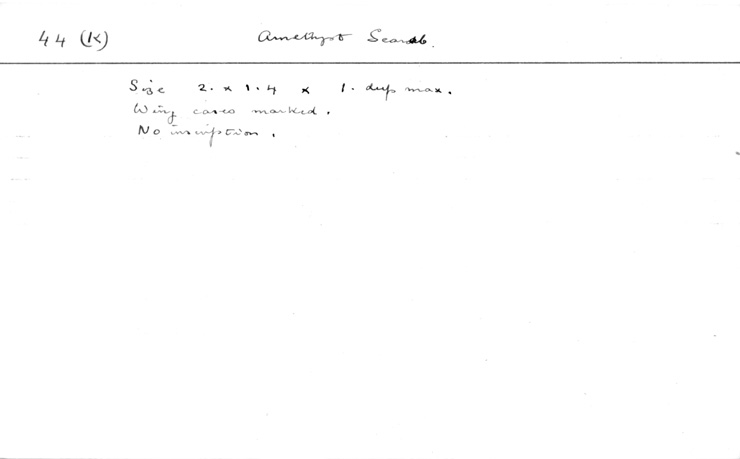 44 (K) Amethyst Scarab.
Size 2. x 1.4 x 1. deep max.
Wing cases marked.
No inscription.